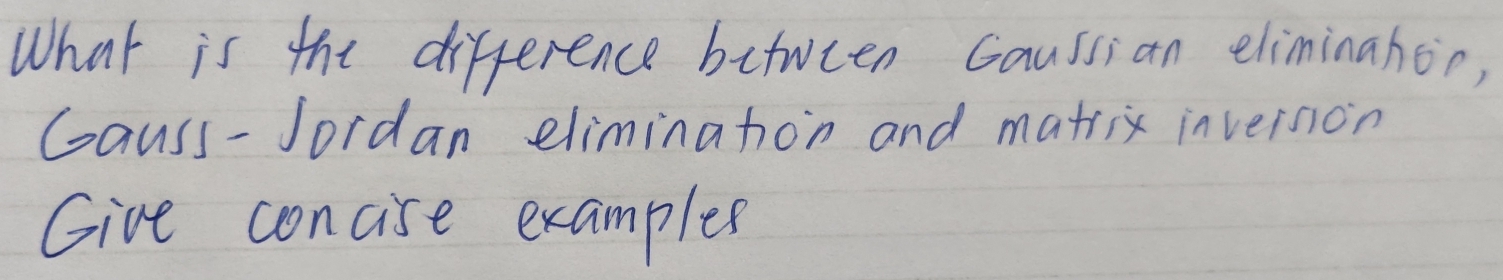 What is the difference between Gaussian elimination,
Gauss-Jordan elimination and matrix inversion
Give concise examples